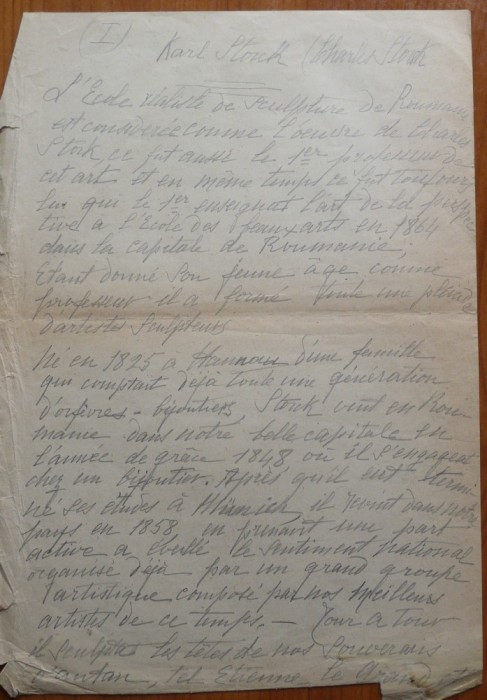 (I)
Karl Stork (Charles Stork
L'Ecole réaliste de sculpture de Roumanie
est considérée comme l'oeuvre de Charles
Stork, ce fut aussi le 1er professeur de
cet art et en même temps ce fut toujours
lui qui le 1er enseignat l'art de la perspec
tive à l'Ecole des beaux arts en 1864
dans la capitale de Roumanie.
Etant donné son jeune âge comme
professeur il a formé toute une pleiade
d'artistes sculpteurs
Né en 1825 à Hannau d'une famille
qui comptait déjà toute une génération
d'orfèvres - bijoutiers, Stork vint en Rou
manie dans notre belle capitale en
l'année de grâce 1848 où il s'engageat
chez un bijoutier. Après qu'il eut termi
né ses études à Münich, il revint dans notre
pays en 1858 en prenant une part
active a le sentiment national
organisé déjà par un grand groupe
artistique composé par nos meilleurs
artistes de ce temps. — Tour a tour
il sculpta les têtes de nos souverains
d'antan, tel Etienne le Grand